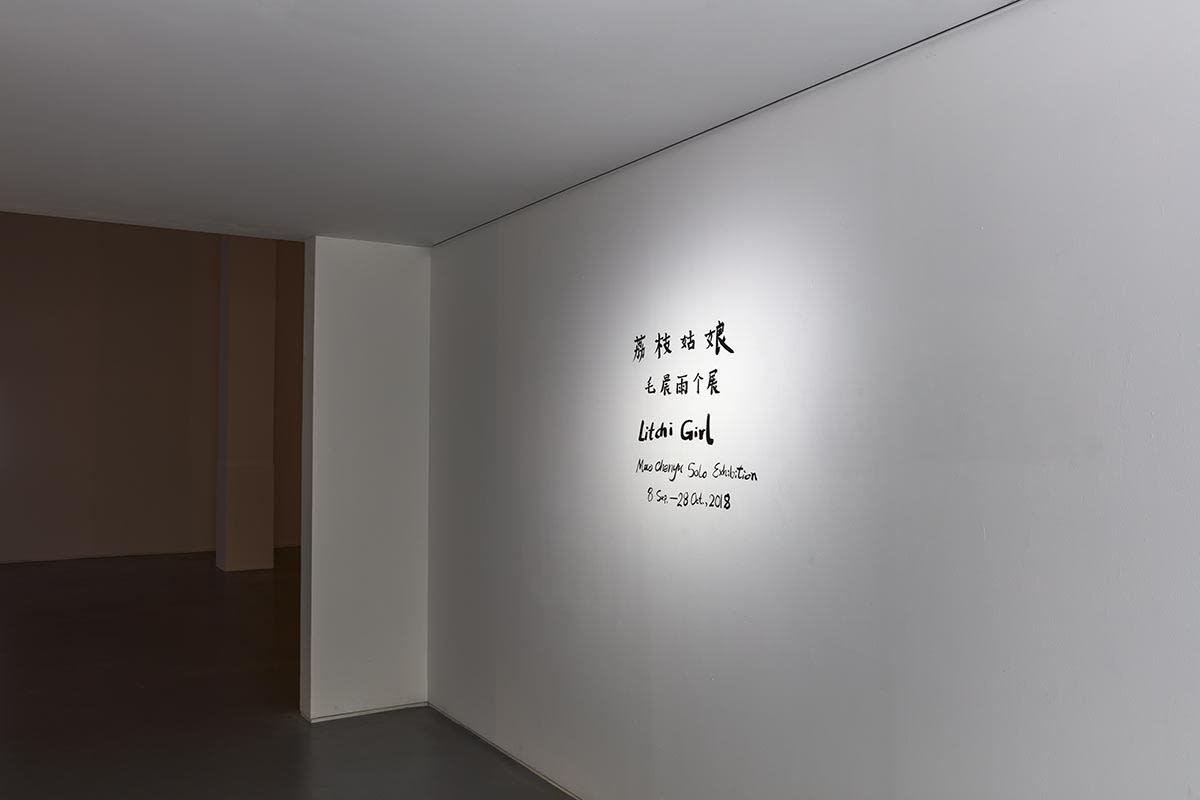 荔枝姑娘
毛晨雨个展
Litchi Girl
Mao Chenyu Solo Exhibition
8 Sep.—28 Oct., 2018